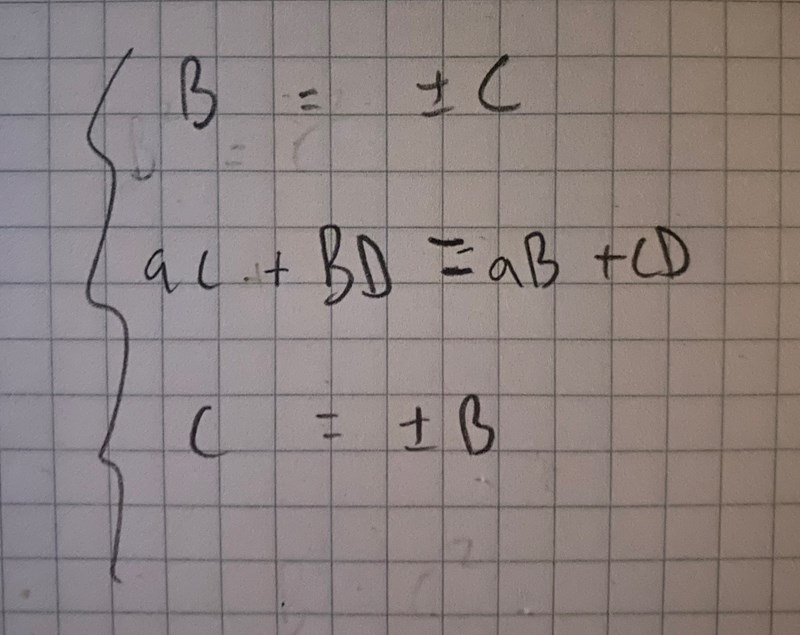 B = ± C
aC + BD = aB + CD
C = ± B